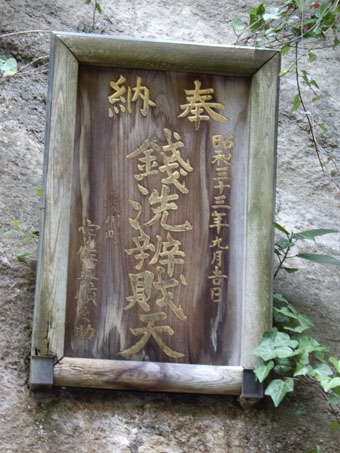 奉納
昭和三十三年九月吉日
銭洗辨財天
川町
之助